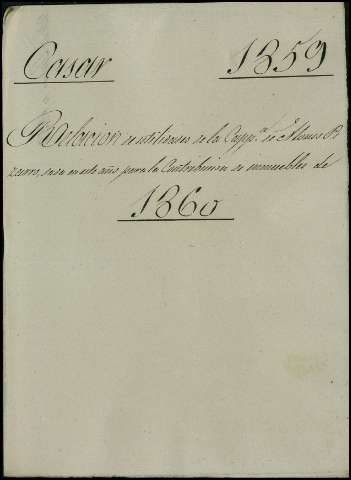 Casar 1859
Relacion de utilidades de la Capp.ª de Alonso Pi
zarro, dada en este año para la Contribucion de inmuebles de
1860